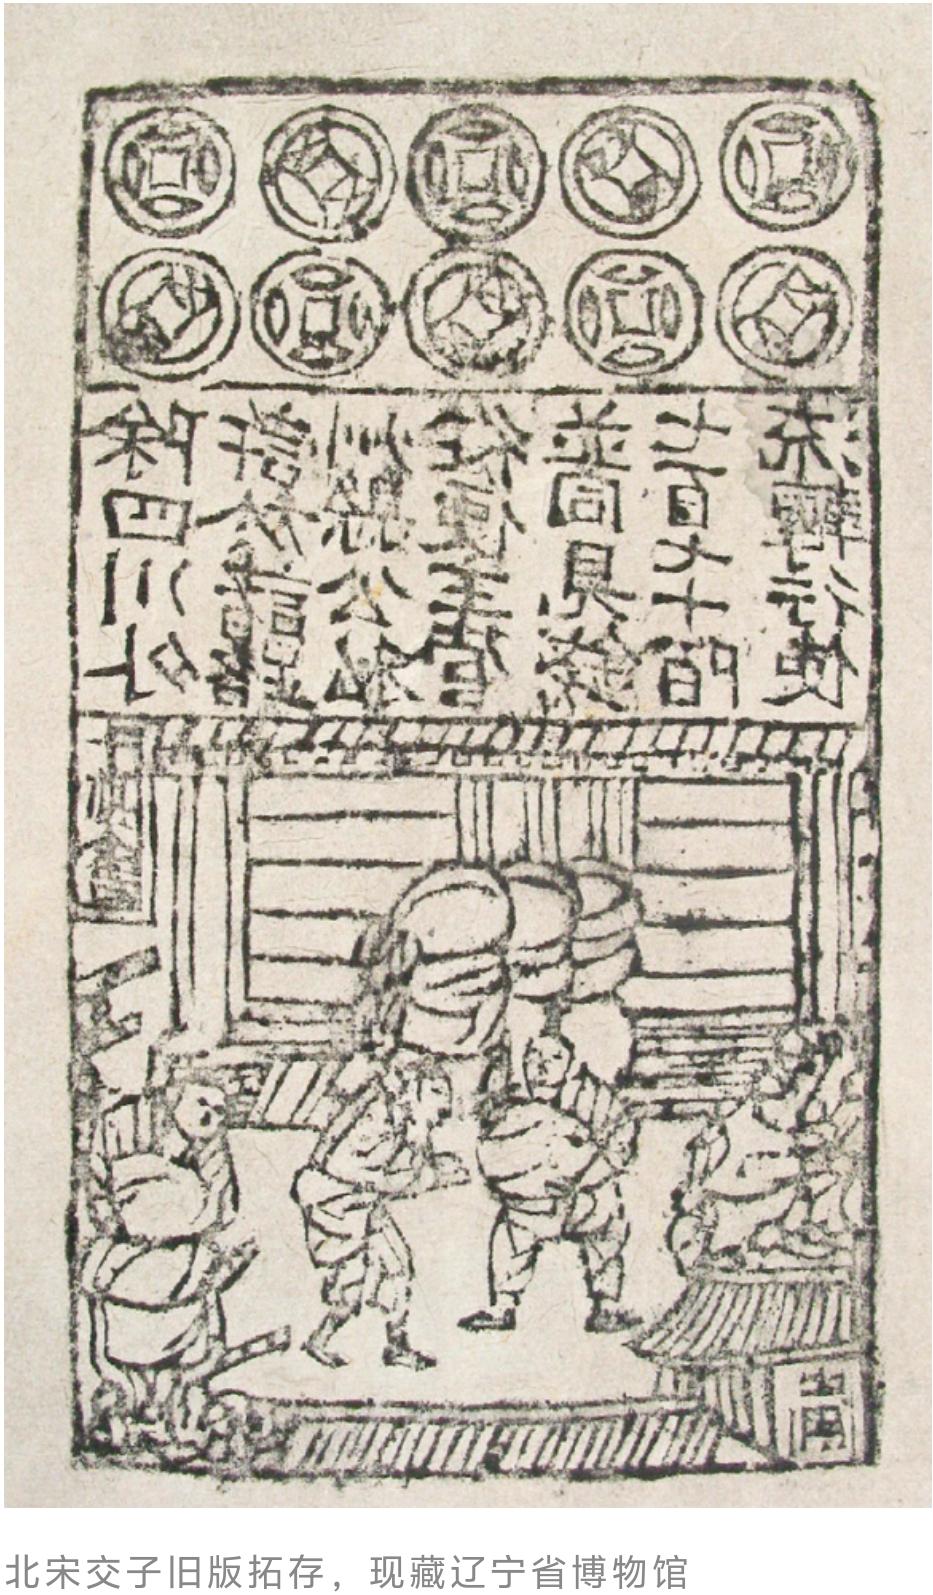 除四川外
許於諸路
州縣公私
從便主管
並同見錢
七百七十陌
流轉行使
千斯倉
北宋交子旧版拓存，现藏辽宁省博物馆